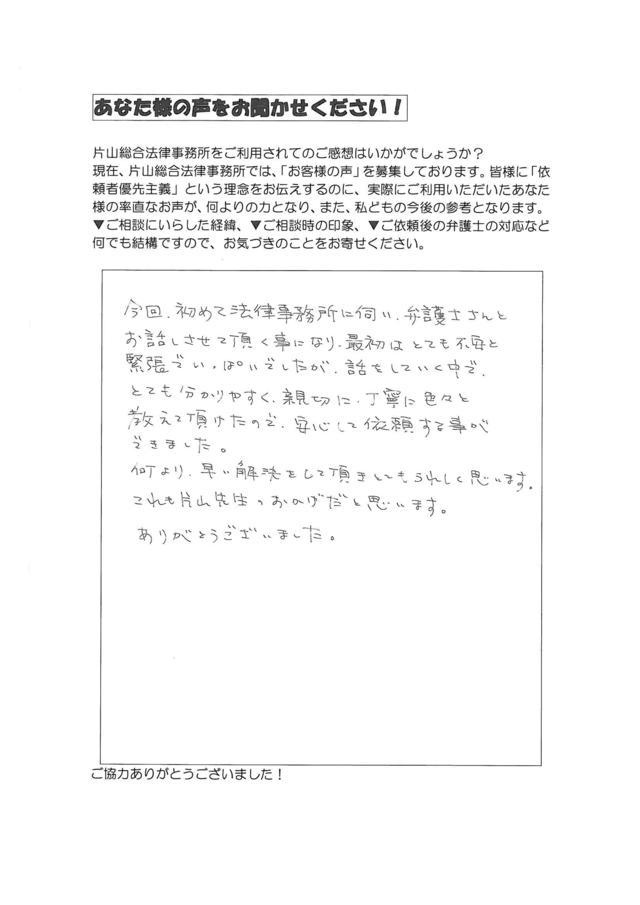 あなた様の声をお聞かせください！
片山総合法律事務所をご利用されてのご感想はいかがでしょうか？
現在、片山総合法律事務所では、「お客様の声」を募集しております。皆様に「依
頼者優先主義」という理念をお伝えするのに、実際にご利用いただいたあなた
様の率直なお声が、何よりの力となり、また、私どもの今後の参考となります。
▼ご相談にいらした経緯、▼ご相談時の印象、▼ご依頼後の弁護士の対応など
何でも結構ですので、お気づきのことをお寄せください。
今回、初めて法律事務所に伺い、弁護士さんと
お話しさせて頂く事になり、最初はとても不安と
緊張でいっぱいでしたが、話をしていく中で、
とても分かりやすく、親切に、丁寧に色々と
教えて頂けたので、安心して依頼する事が
できました。
何より、早い解決をして頂きとてもうれしく思います。
これも片山先生のおかげだと思います。
ありがとうございました。
ご協力ありがとうございました！